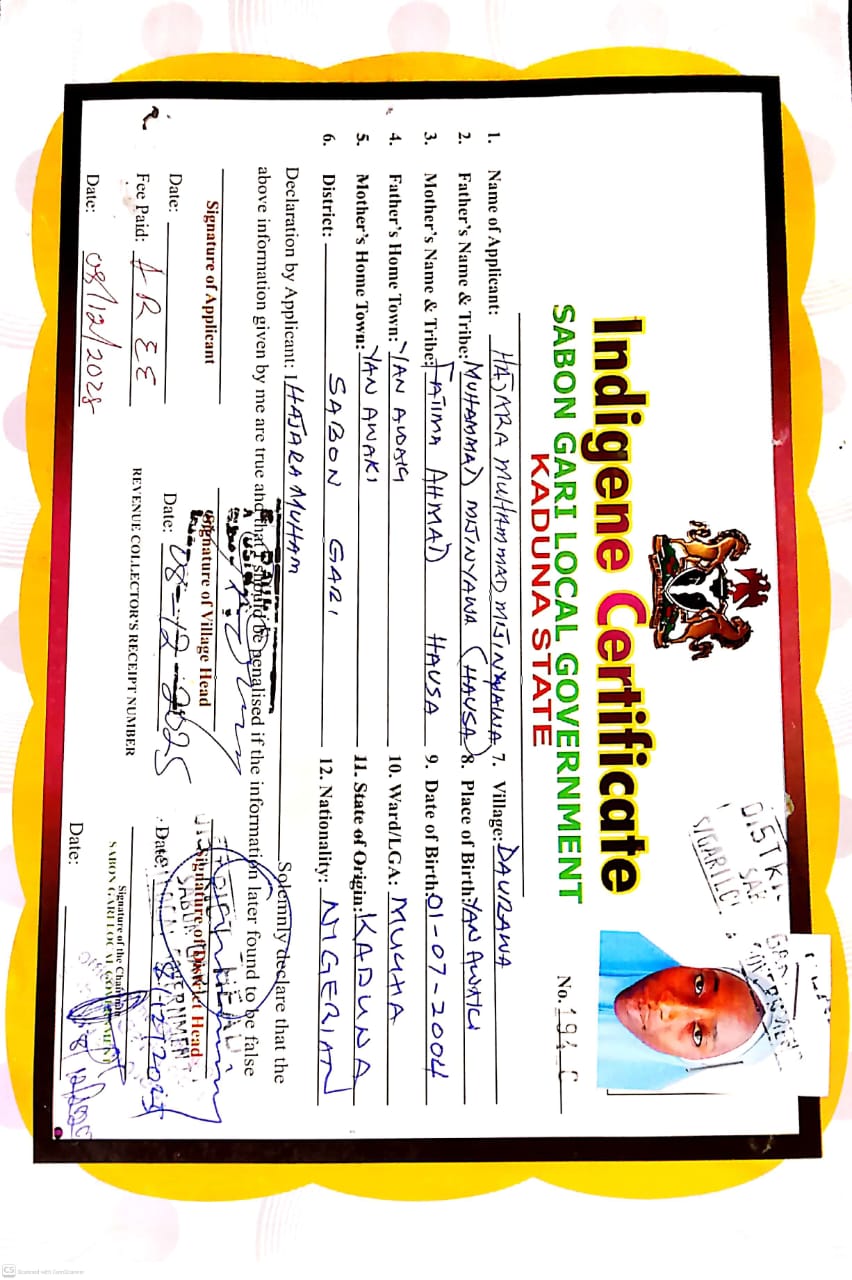 Indigene Certificate
SABON GARI LOCAL GOVERNMENT
KADUNA STATE
No. 194 C
1. Name of Applicant: HAJARA MUHAMMAD
2. Father's Name & Tribe: MUHAMMAD (HAUSA)
3. Mother's Name & Tribe: FATIMA AHMAD HAUSA
4. Father's Home Town: YAN AWAKI
5. Mother's Home Town: YAN AWAKI
6. District: SABON GARI
7. Village: DAURAWA
8. Place of Birth: YAN AWAKI
9. Date of Birth: 01-07-2004
10. Ward/LGA: MUCHIA
11. State of Origin: KADUNA
12. Nationality: NIGERIAN
Declaration by Applicant: I HAJARA MUHAM Solemnly declare that the
above information given by me are true and that I should be penalised if the information later found to be false
Signature of Applicant
Signature of Village Head
Signature of District Head
Date:
Date: 08-12-2025
Date:
Fee Paid: FREE
REVENUE COLLECTOR'S RECEIPT NUMBER
Signature of the Chairman
SABON GARI LOCAL GOVERNMENT
Date: 08/12/2025
Date:
CS Scanned with CamScanner